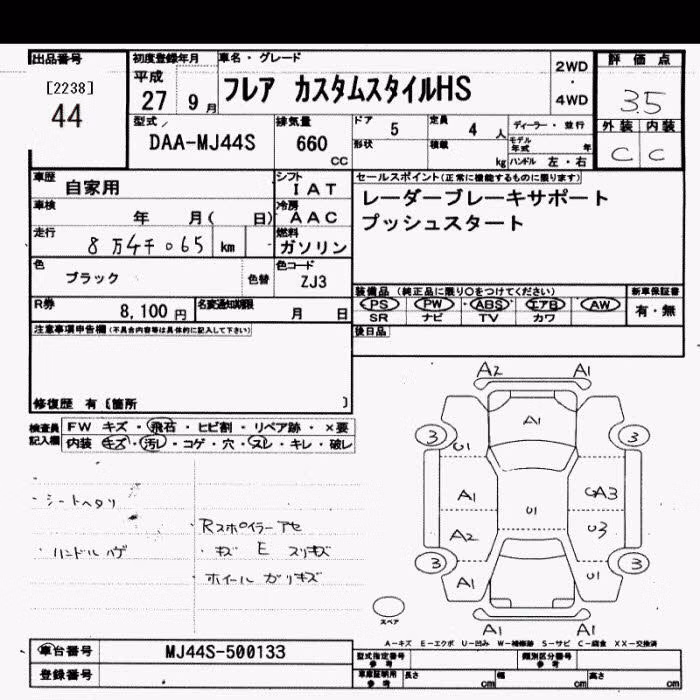 出品番号
[2238]
44
初度登録年月
平成
27 9 月
車名・グレード
フレア カスタムスタイルHS
2WD
4WD
評価点
3.5
外装 内装
C C
型式
DAA-MJ44S
排気量
660
CC
ドア 5
形状
定員 4 人
積載 kg
ディーラー・並行
モデル年式 年
ハンドル 左・右
車歴 自家用
シフト
IAT
車検 年 月( 日)
冷房
AAC
走行 8万4千065 km
燃料
ガソリン
色 ブラック 色替
色コード
ZJ3
R券 8,100 円
名変通知期限 月 日
セールスポイント(正常に機能するものに限ります)
レーダーブレーキサポート
プッシュスタート
装備品 (純正品に限り○をつけてください)
新車保証書
PS PW ABS エアB AW
SR ナビ TV カワ
有・無
後日品
注意事項申告欄(不具合内容等は具体的に記入して下さい)
修復歴 有 [箇所 ]
検査員記入欄
FW キズ・飛石・ヒビ割・リペア跡・×要
内装 キズ・汚レ・コゲ・穴・スレ・キレ・破レ
・シートヘタリ
・ハンドルハゲ
Rスポイラーアセ
・キズ E スリキズ
ホイールガリキズ
A2 A1
A1
3 3
U1
A1 GA3
U1
A2 U3
3 3
A1 U1
A1 A1
スペア
A-キズ E-エクボ U-凹み W-補修跡 S-サビ C-腐食 XX-交換済
車台番号 MJ44S-500133
登録番号
型式指定番号 参考
類別区分番号 参考
車庫証明用 参考
長さ cm 幅 cm 高さ cm